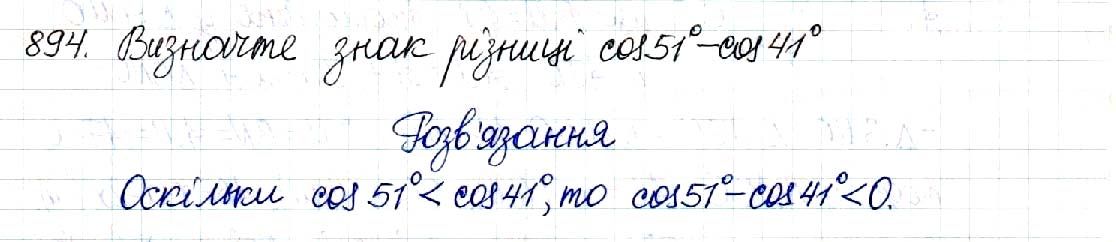 894. Визначте знак різниці cos51°-cos41°
Розв'язання
Оскільки cos51°<cos41°, то cos51°-cos41°<0.